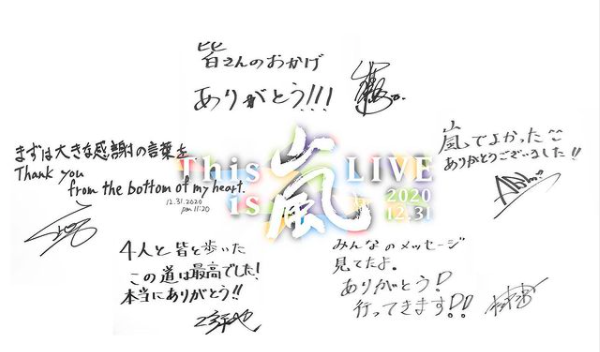 皆さんのおかげ
ありがとう!!!
まずは大きな感謝の言葉を
Thank you
from the bottom of my heart.
12.31.2020
pm 11:20
This
is
嵐
LIVE
2020
12.31
嵐でよかった
ありがとうございました!!
4人と皆と歩いた
この道は最高でした!
本当にありがとう!!
みんなのメッセージ
見てたよ。
ありがとう!
行ってきます!!